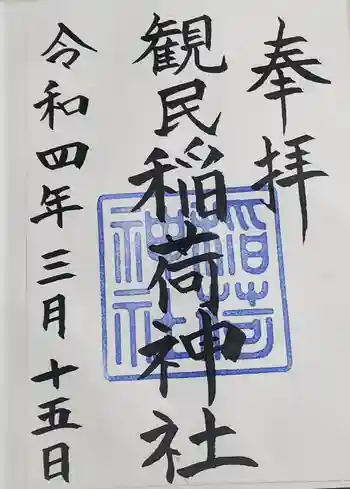 奉拝
観民稲荷神社
令和四年三月十五日
稲荷
神社